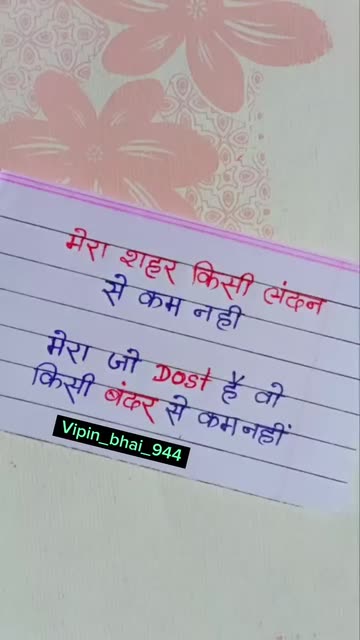 मेरा शहर किसी लंदन
से कम नही
मेरा जो Dost है वो
किसी बंदर से कम नहीं
Vipin_bhai_944